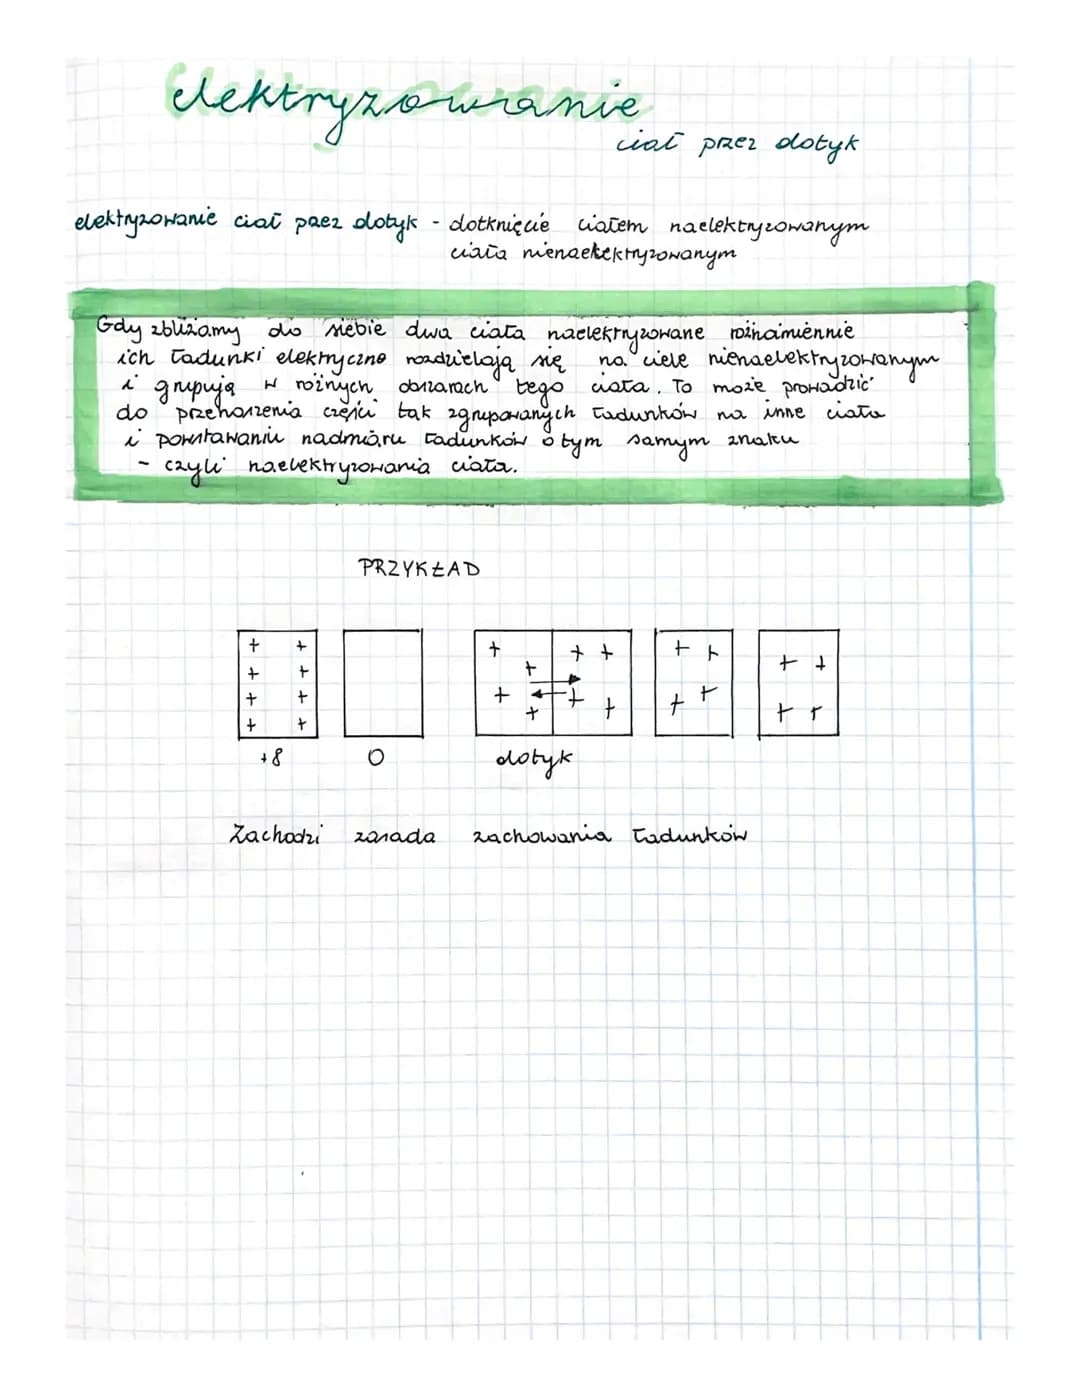 elektryzowanie
ciał przez dotyk
elektryzowanie ciał przez dotyk - dotknięcie ciałem naelektryzowanym
ciała nienaelektryzowanym
Gdy zbliżamy do siebie dwa ciała naelektryzowane różnoimiennie
ich ładunki elektryczne rozdzielają się na ciele nienaelektryzowanym
i grupują w różnych obszarach tego ciała. To może prowadzić
do przenoszenia części tak zgrupowanych ładunków na inne ciało
i powstawaniu nadmiaru ładunków o tym samym znaku
- czyli naelektryzowania ciała.
PRZYKŁAD
+ + + + + + + +
+ + + + + + + +
+ + + +
+ + + +
+8 0 dotyk
Zachodzi zasada zachowania ładunków